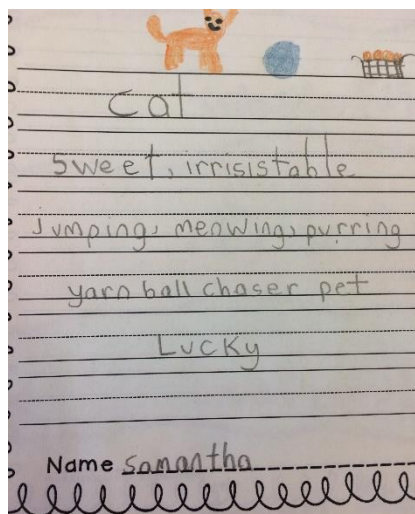 Cat
Sweet, irrisistable
jumping, meowing, purring
yarn ball chaser pet
Lucky
Name Samantha